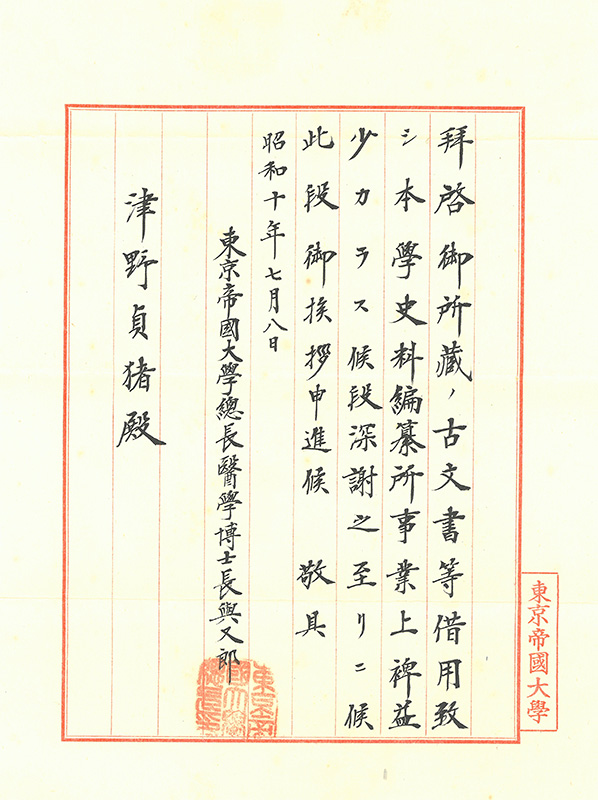 拜啓御所藏ノ古文書等借用致
シ本學史料編纂所事業上裨益
少カラス候段深謝之至リニ候
此段御挨拶申進候 敬具
昭和十年七月八日
東京帝國大學總長醫學博士長與又郎
津野貞猪殿
東京帝國大學